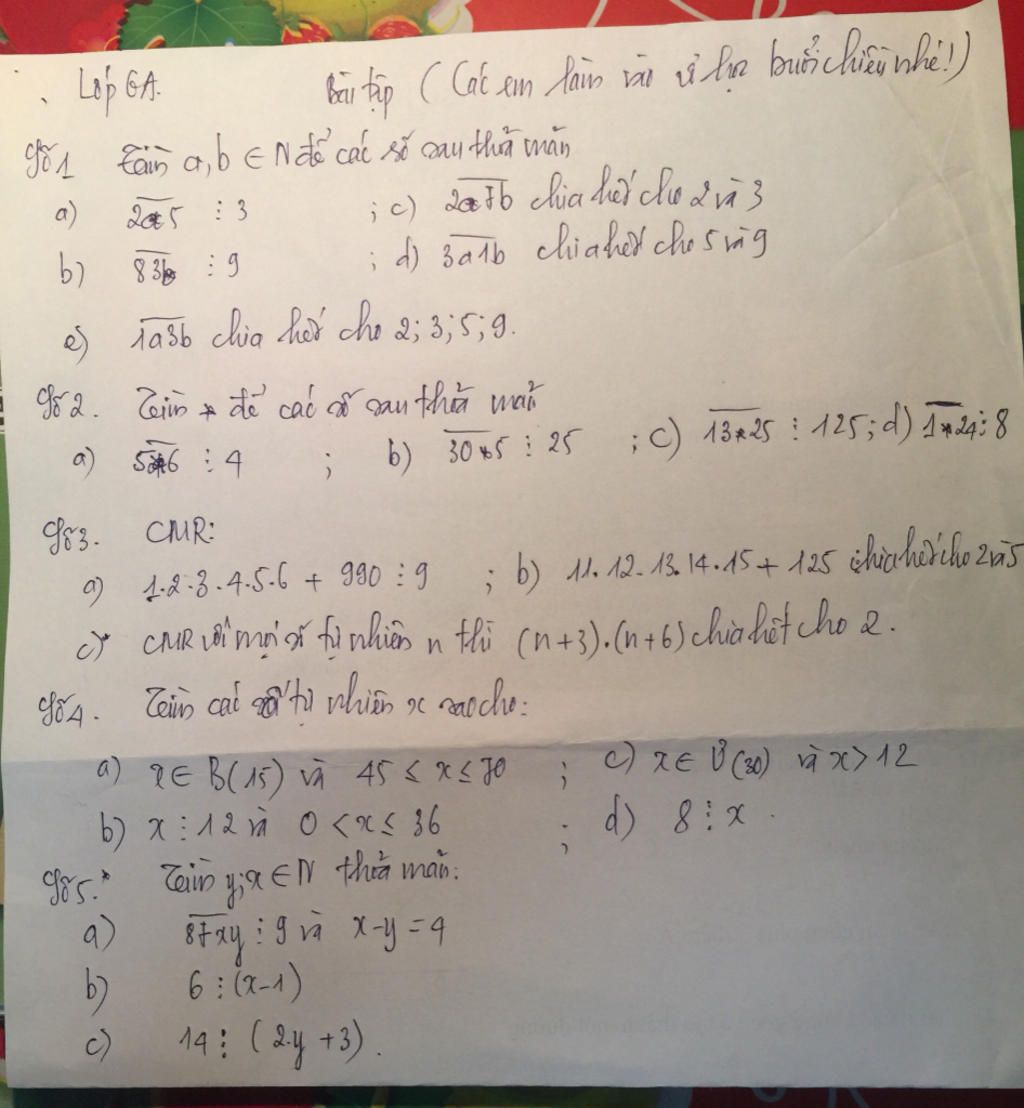 Lớp 6A. Bài tập (Các em làm vào vở học buổi chiều nhé!)
Số 1 Tìm a, b ∈ N để các số sau thỏa mãn
a) \overline{2a5} ⋮ 3 ; c) \overline{2a7b} chia hết cho 2 và 3
b) \overline{83b} ⋮ 9 ; d) \overline{3a1b} chia hết cho 5 và 9
e) \overline{1a3b} chia hết cho 2; 3; 5; 9.
Số 2. Tìm * để các số sau thỏa mãn
a) \overline{5*6} ⋮ 4 ; b) \overline{30*5} ⋮ 25 ; c) \overline{13*25} ⋮ 125; d) \overline{1*24} ⋮ 8
Số 3. CMR:
a) 1.2.3.4.5.6 + 990 ⋮ 9 ; b) 11.12.13.14.15 + 125 chia hết cho 2 và 5
c)* CMR với mọi số tự nhiên n thì (n+3).(n+6) chia hết cho 2.
Số 4. Tìm các số tự nhiên x sao cho:
a) x ∈ B(15) và 45 ≤ x ≤ 70 ; c) x ∈ Ư(30) và x > 12
b) x ⋮ 12 và 0 < x ≤ 36 ; d) 8 ⋮ x.
Số 5.* Tìm y; x ∈ N thỏa mãn:
a) \overline{87xy} ⋮ 9 và x - y = 4
b) 6 ⋮ (x-1)
c) 14 ⋮ (2.y + 3).